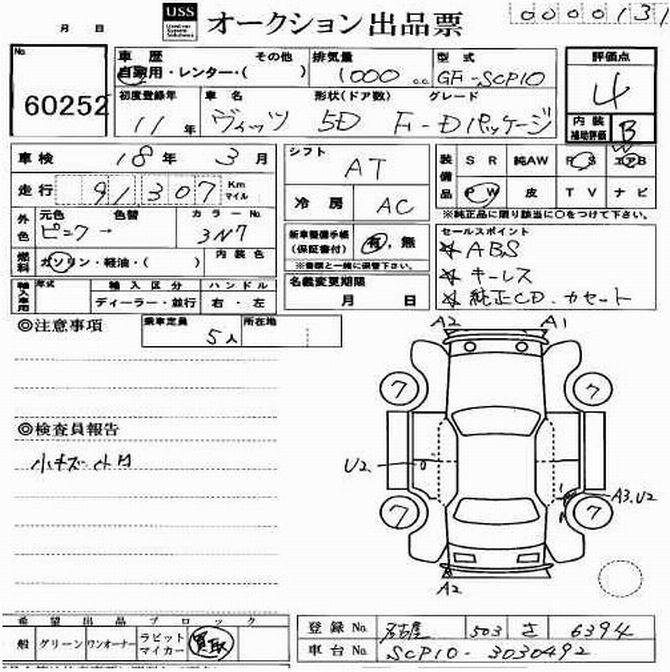 0000131
月 日
USS
オークション出品票
No
60252
車歴 その他
自家用・レンター・( )
排気量
1000 cc
型式
GF-SCP10
評価点
4
初度登録年
11年
車名
ヴィッツ
形状(ドア数)
5D
グレード
F-Dパッケージ
内装
補助評価
B
車検 18年 3月
走行 91307 Km
マイル
シフト
AT
冷房 AC
装備品
S R 純AW P S エアB
P W 皮 T V ナビ
※純正品に限り該当に○をつけて下さい。
外色
元色 色替
ピンク →
カラーNo.
3N7
燃料 ガソリン・軽油・( )
内装色
新車整備手帳
(保証書付)
有, 無
※書類と一緒に保管下さい。
セールスポイント
ABS
キーレス
純正CD.カセット
輸入車用
年式
輸入区分
ディーラー・並行
ハンドル
右・左
名義変更期限
月 日
◎注意事項
乗車定員 5人
所在地
A2 A1
7 7
◎検査員報告
小キズ 小凹
U2
A3.U2
7 7
A2
希望出品ブロック
一般 グリーン ワンオーナー ラビットマイカー 買取
登録No. 名古屋 503 さ 6394
車台No. SCP10-3030492